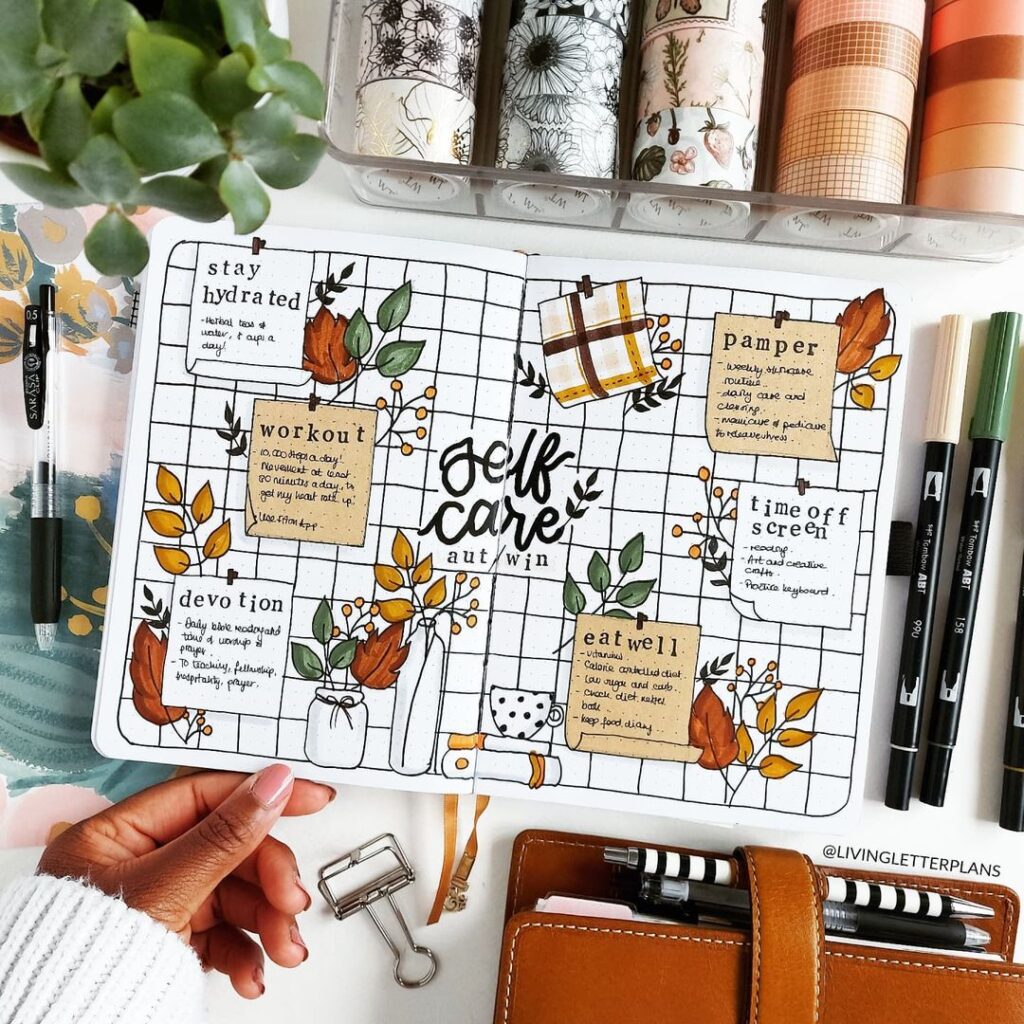 stay
hydrated
- Herbal teas &
water, 8 cups a
day!
workout
- 10,000 steps a day!
- Movement at least
30 minutes a day, to
get my heart rate up!
- Use Fiton App
devotion
- Daily bible reading and
time of worship &
prayer.
- To teaching, fellowship,
hospitality, prayer.
self
care
aut/win
pamper
- weekly skincare
routine.
- daily care and
cleansing.
- manicure & pedicure
time off
screen
- reading.
- Art and creative
crafts.
- Practice keyboard.
eat well
- vitamins.
Calorie controlled diet
- low sugar and carb,
check diet
book
- keep food diary
0.5
SARASA
CLIP
WT
WT
WT
WT
Tombow ABT
990
Tombow ABT
158
@LIVINGLETTERPLANS